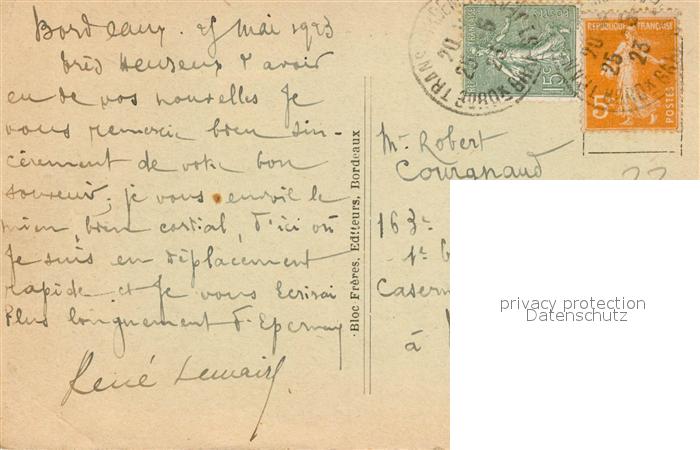 Bordeaux. 25 Mai 1923
très Heureux d'avoir
eu de vos nouvelles Je
vous remercie bien sin-
cèrement de votre bon
souvenir; je vous envoie le
mien, bien cordial, d'ici où
Je suis en déplacement
rapide et Je vous Ecrirai
Plus longuement d'Epernay
René Lemaire
Bloc Frères, Editeurs, Bordeaux
REPUBLIQUE FRANÇAISE
15
5
POSTES
25
23
Mr Robert
Courgnaud
163e
1e
Casern
à
privacy protection
Datenschutz